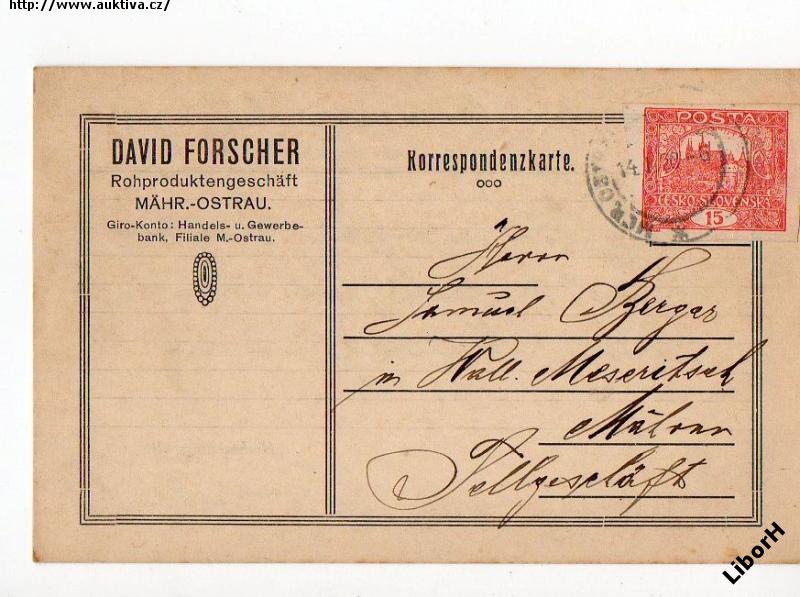 http://www.auktiva.cz/
DAVID FORSCHER
Rohproduktengeschäft
MÄHR.-OSTRAU.
Giro-Konto: Handels- u. Gewerbe-
bank, Filiale M.-Ostrau.
Korrespondenzkarte.
POSTA
ČESKO-SLOVENSKÁ
15
Herrn
Samuel Berger
in Wall. Meseritsch
Mähren
Fellgeschäft
LiborH